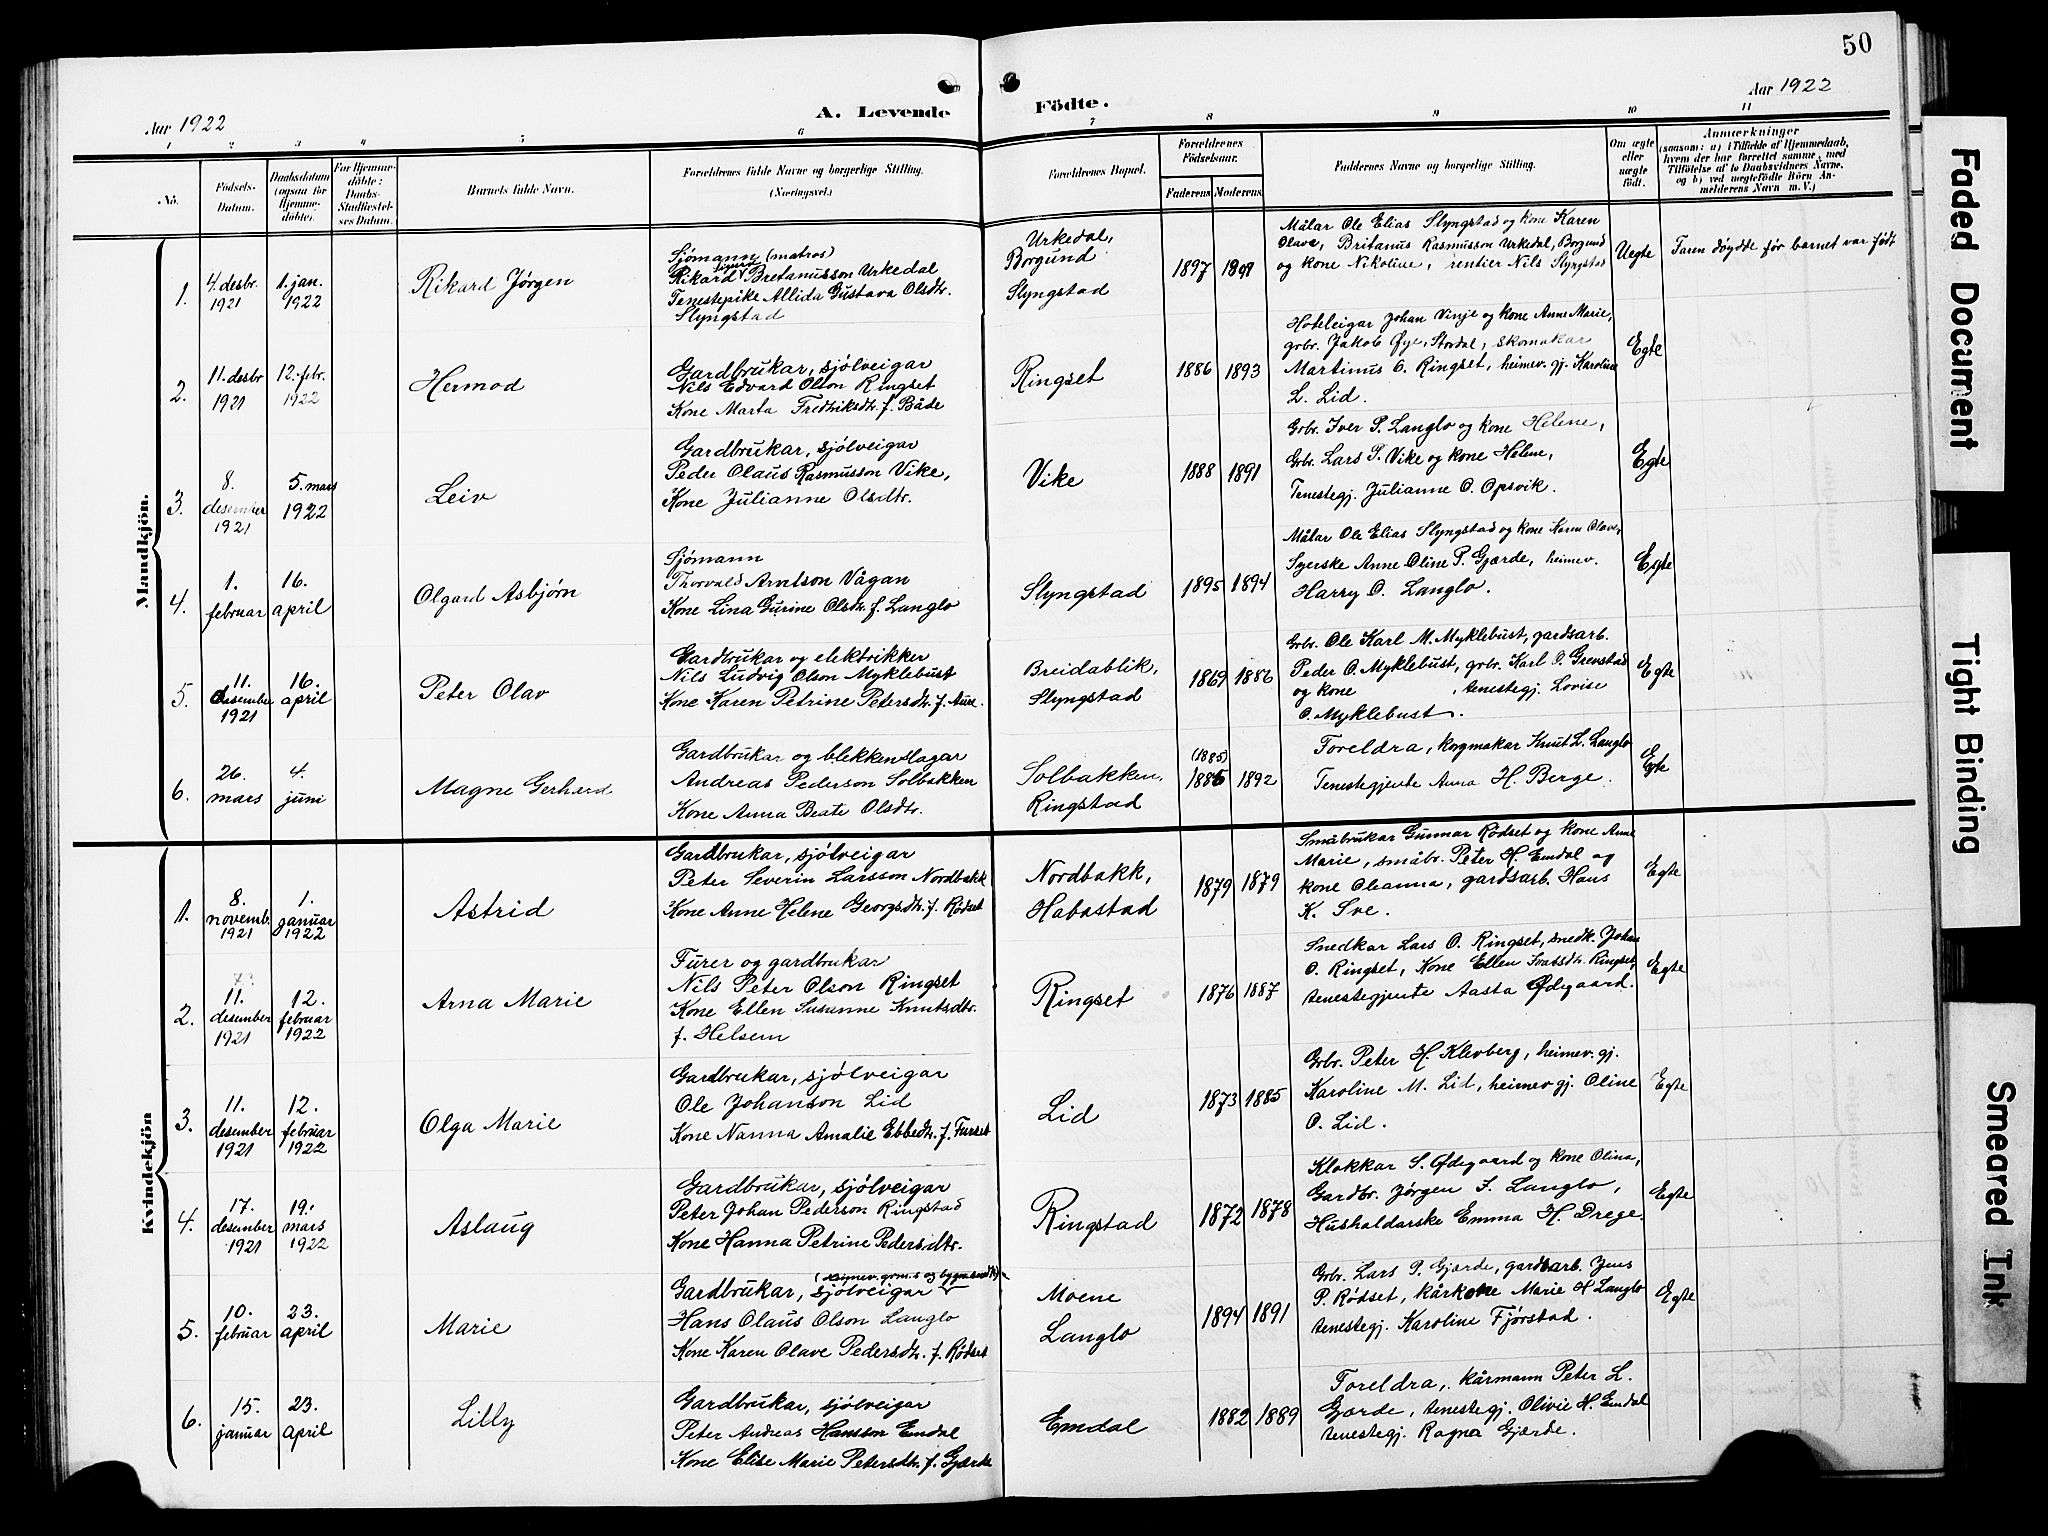 50
Aar 1922
A. Levende Födte.
Aar 1922
1 2 3 4 5 6 7 8 9 10 11
No.
Födsels-
Datum.
Daabsdatum
(ogsaa for
Hjemme-
döbte).
For Hjemme-
döbte:
Daabs-
Stadfæstel-
ses Datum.
Barnets fulde Navn.
Forældrenes fulde Navne og borgerlige Stilling.
(Næringsvei.)
Forældrenes Bopæl.
Forældrenes
Födselsaar.
Faderens
Moderens
Faddernes Navne og borgerlige Stilling.
Om ægte
eller
uægte
födt.
Anmærkninger
(saasom: a) i Tilfælde af Hjemmedaab,
hvem der har forrettet samme, med
Tilföielse af to Daabsvidners Navne.
og b) ved uægtefödte Börn An-
melderens Navn m. V.)
Mandkjön.
1.
4. desbr.
1921
1. jan.
1922
Rikard Jørgen
Sjømann (matros)
Rikard Bretanusson Urkedal
Tenestepike Allida Gustava Olsdtr.
Slyngstad
Urkedal,
Borgund
Slyngstad
1897
Målar Ole Elias Slyngstad og kone Karen
Olava, Britanus Rasmusson Urkedal, Borgund
og kone Nikoline, rentier Nils Slyngstad
Uegte
Faren døydde før barnet var født
2.
11. desbr
1921
12. febr.
1922
Hermod
Gardbrukar, sjølveigar
Nils Edvard Olson Ringset
Kone Marta Fredriksdtr. f. Både
Ringset
1886 1893
Hoteleigar Johan Vinje og kone Anne Marie,
grbr. Jakob Øye, Stordal, skomakar
Martinus O. Ringset, heimev. gj. Karoline
L. Lid.
Egte
3.
8.
desember
1921
5. mars
1922
Leiv
Gardbrukar, sjølveigar
Peder Olaus Rasmusson Vike,
Kone Julianne Olsdtr.
Vike
1888 1891
Grbr. Iver P. Langlo og kone Helene,
Grbr. Lars P. Vike og kone Helene,
Tenestegj. Julianne O. Opsvik.
Egte
4.
1.
februar
16.
april
Olgard Asbjørn
Sjømann
Thorvald Arntson Vågan
Kone Lina Gurine Olsdtr. f. Langlo
Slyngstad
1895 1894
Målar Ole Elias Slyngstad og kone Karen Olave,
Syerske Anne Oline P. Gjærde, heimev.
Harry O. Langlo.
Egte
5.
11.
desember
1921
16.
april
Peter Olav
Gardbrukar og elektrikker
Nils Ludvig Olson Myklebust
Kone Karen Petrine Petersdtr. f. Aure.
Breidablik,
Slyngstad
1869 1886
Grbr. Ole Karl M. Myklebust, gardsarb.
Peder O. Myklebust, grbr. Karl O. Grevstad
og kone , tenestegj. Lovise
O. Myklebust.
Egte
6.
26.
mars
4.
juni
Magne Gerhard
Gardbrukar og blekkenslagar
Andreas Pederson Solbakken
Kone Anna Beate Olsdtr.
Solbakken,
Ringstad
(1885)
1886 1892
Foreldra, korgmakar Knut L. Langlo
Tenestegjente Anna H. Berge.
Egte
Kvindekjön
1.
8.
novemb.
1921
1.
januar
1922
Astrid
Gardbrukar, sjølveigar
Peter Severin Larsson Nordbakk
Kone Anne Helene Georgsdtr. f. Rødset
Nordbakk,
Habostad
1879 1879
Småbrukar Gunnar Rødset og kone Anne
Marie, småbr. Peter H. Emdal og
kone Oleanna, gardsarb. Hans
K. Sve.
Egte
2.
11.
desember
1921
12.
februar
1922
Arna Marie
Furer og gardbrukar
Nils Peter Olson Ringset
Kone Ellen Susanne Knutsdtr.
f. Helsem
Ringset
1876 1887
Snedkar Lars O. Ringset, snedk. Johan
O. Ringset, Kone Ellen Ringset,
tenestegjente Aasta Ødegaard.
Egte
3.
11.
desember
1921
12.
februar
1922
Olga Marie
Gardbrukar, sjølveigar
Ole Johanson Lid
Kone Nanna Amalie Ebbedtr. f. Furset
Lid
1873 1885
Grbr. Peter H. Klevberg, heimev. gj.
Karoline M. Lid, heimev gj. Oline
O. Lid.
Egte
4.
17.
desember
1921
19.
mars
1922
Aslaug
Gardbrukar, sjølveigar
Peter Johan Pederson Ringstad
Kone Hanna Petrine Pedersdtr.
Ringstad
1872 1878
Klokkar S. Ødegaard og kone Olina,
Gardbr. Jørgen I. Langlo,
Hushaldarske Emma H. Drege.
Egte
5.
10.
februar
23.
april
Marie
Gardbrukar, sjølveigar
Hans Olaus Olson Langlo
Kone Karen Olave Pedersdtr. f. Rødset
Moene
Langlo
1894 1891
Grbr. Lars P. Gjærde, gardsarb. Jens
P. Rødset, kårkone Marie H Langlo
tenestegj. Karoline Fjørstad.
Egte
6.
15.
januar
23.
april
Lilly
Gardbrukar, sjølveigar
Peter Andreas Hansson Emdal
Kone Elise Marie Petersdtr. f. Gjærde
Emdal
1882 1889
Foreldra, kårmann Peter L.
Gjærde, tenestegj. Olivie H. Emdal
tenestegj. Ragna Gjærde.
Faded Document
Tight Binding
Smeared Ink